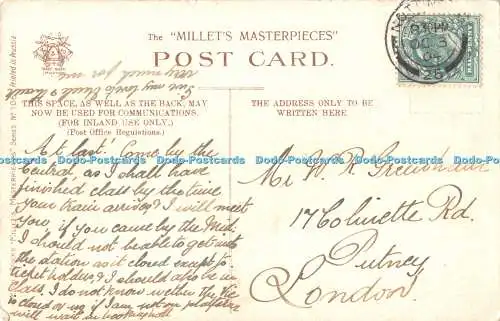 The "MILLET'S MASTERPIECES"
POST CARD.
Give my love to Enid & thank
very much for me
THIS SPACE, AS WELL AS THE BACK, MAY
NOW BE USED FOR COMMUNICATIONS.
(FOR INLAND USE ONLY.)
(Post Office Regulations.)
THE ADDRESS ONLY TO BE
WRITTEN HERE
At last! Come by the
Central, as I shall have
finished class by the time
your train arrives. I will meet
you, if you came by the Mid.
I should not be able to get into
the station as it closed except for
ticket holders, & I should also be in
class I do not know whether the
is closed or no if I am not on platform
will wait in booking hall
Mr W. R.
17 Colinette Rd.
Putney
London
HALFPENNY
Printed in Prussia
www.Postcards-World.com